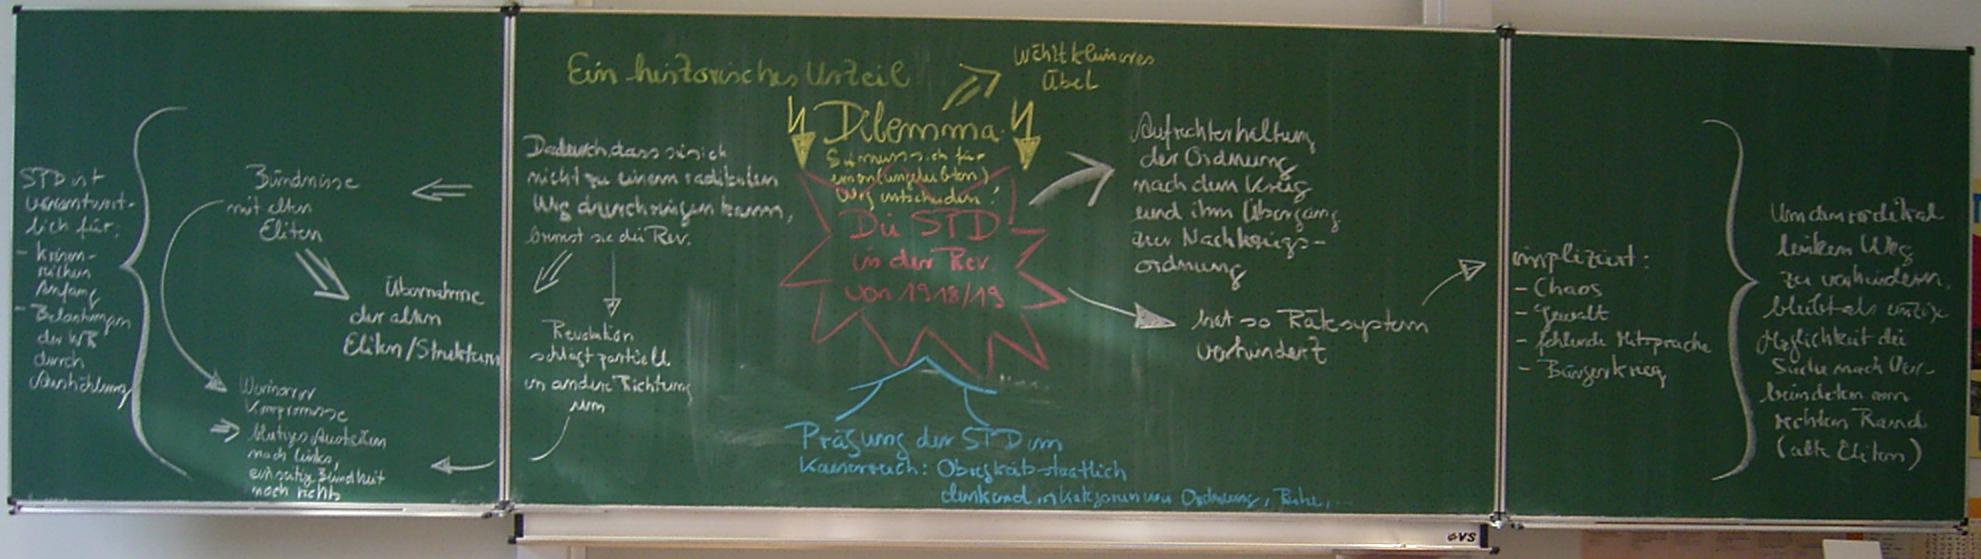 SPD ist
verantwort-
lich für:
- keinen
reichen
Anfang
- Belastungen
der WR
durch
Aushöhlung
Bündnisse
mit alten
Eliten
Übernahme
der alten
Eliten/Strukturen
Weimarer
Kompromisse
blutiges Ausschalten
nach links,
einseitig Blindheit
nach rechts
Ein historisches Urteil
wählt kleineres
Übel
Dilemma
Sie muss sich für
einen (ungeliebten)
Weg entscheiden!
Die SPD
in der Rev.
von 1918/19
Dadurch, dass sie sich
nicht zu einem radikalen
Weg durchringen kann,
bremst sie die Rev.
Revolution
schlägt partiell
in andere Richtung
um
Prägung der SPD im
Kaiserreich: Obrigkeitsstaatlich
denkend, in Kategorien von Ordnung, Ruhe, ...
Aufrechterhaltung
der Ordnung
nach dem Krieg
und ihm Übergang
zur Nachkriegs-
ordnung
hat so Rätesystem
verhindert
impliziert:
- Chaos
- Gewalt
- fehlende Mitsprache
- Bürgerkrieg
Um den radikal
linken Weg
zu verhindern,
bleibt als einzige
Möglichkeit die
Suche nach Ver-
bündeten am
rechten Rand
(alte Eliten)
VS